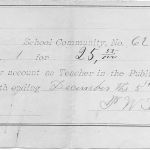 School Community, No. 62
1 for 25,
account as Teacher in the Public
th ending December the 5
W